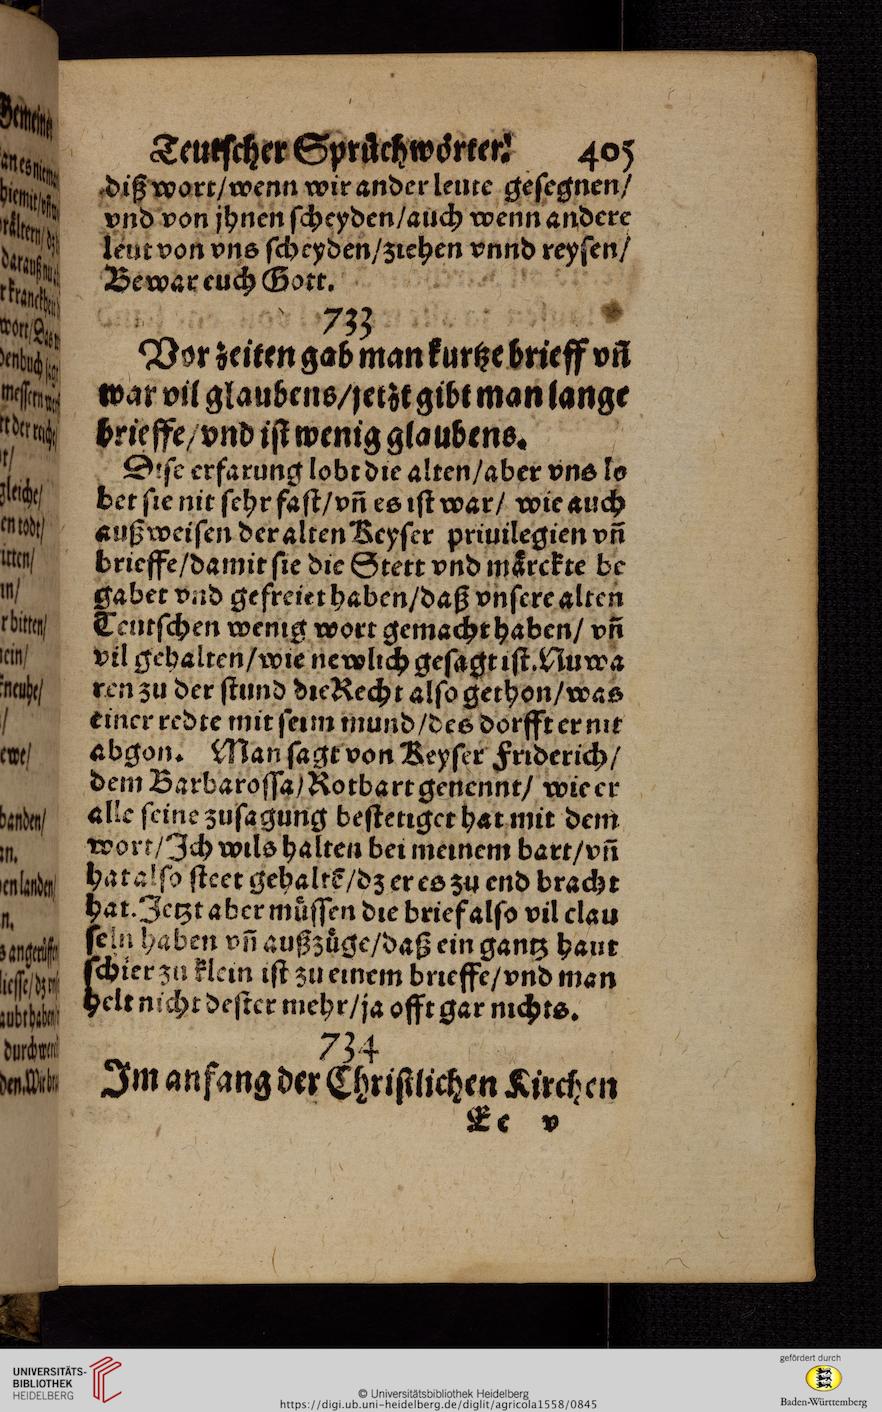 Teutscher Sprüchwörter. 405
diß wort/wenn wir ander leute gesegnen/
vnd von jhnen scheyden/auch wenn andere
leut von vns scheyden/ziehen vnnd reysen/
Bewar euch Gott.
733
Vor zeiten gab man kurtze brieff vñ
war vil glaubens/jetzt gibt man lange
brieffe/vnd ist wenig glaubens.
Dise erfarung lobt die alten/aber vns lo
bet sie nit sehr fast/vñ es ist war/ wie auch
außweisen der alten Keyser priuilegien vñ
brieffe/damit sie die Stett vnd märckte be
gabet vnd gefreiet haben/daß vnsere alten
Teutschen wenig wort gemacht haben/ vñ
vil gehalten/wie newlich gesagt ist. Nu wa
ren zu der stund die Recht also gethon/was
einer redte mit seim mund/des dorfft er nit
abgon. Man sagt von Keyser Friderich/
dem Barbarossa/Rotbart genennt/ wie er
alle seine zusagung bestetiget hat mit dem
wort/Ich wils halten bei meinem bart/vñ
hat also steet gehaltẽ/dz er es zu end bracht
hat. Jetzt aber müssen die brief also vil clau
seln haben vñ außzüge/daß ein gantz haut
schier zu klein ist zu einem brieffe/vnd man
helt nicht dester mehr/ja offt gar nichts.
734
Im anfang der Christlichen Kirchen
Ee v
UNIVERSITÄTS-
BIBLIOTHEK
HEIDELBERG
© Universitätsbibliothek Heidelberg
https://digi.ub.uni-heidelberg.de/diglit/agricola1558/0845
gefördert durch
Baden-Württemberg